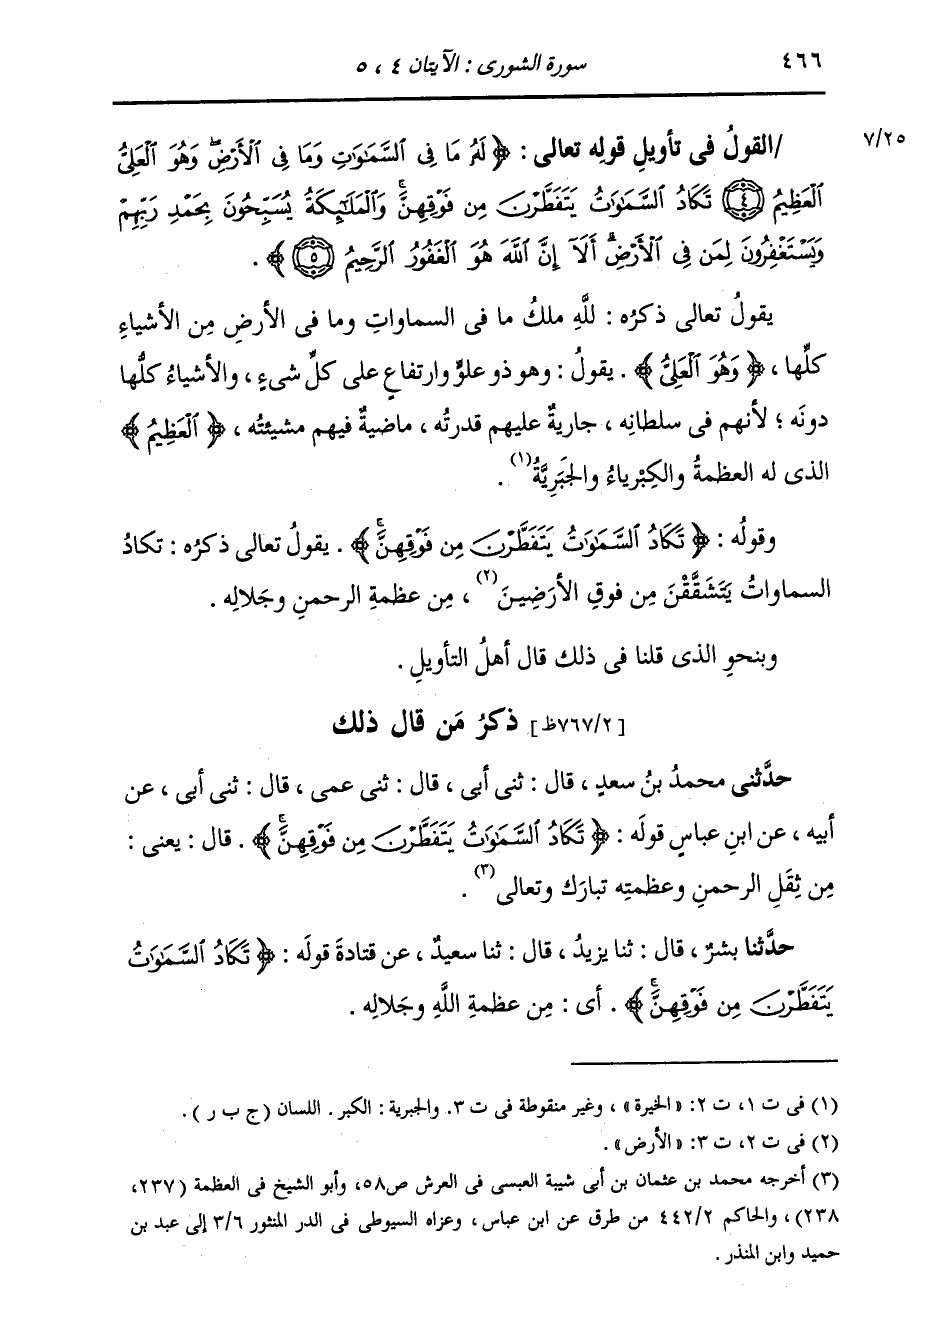 ٤٦٦ سورة الشورى : الآيتان ٤ ، ٥
٧/٢٥ /القولُ فى تأويلِ قوله تعالى : ﴿ لَهُۥ مَا فِى ٱلسَّمَٰوَٰتِ وَمَا فِى ٱلْأَرْضِۖ وَهُوَ ٱلْعَلِىُّ
ٱلْعَظِيمُ ۝٤ تَكَادُ ٱلسَّمَٰوَٰتُ يَتَفَطَّرْنَ مِن فَوْقِهِنَّۚ وَٱلْمَلَٰٓئِكَةُ يُسَبِّحُونَ بِحَمْدِ رَبِّهِمْ
وَيَسْتَغْفِرُونَ لِمَن فِى ٱلْأَرْضِۗ أَلَآ إِنَّ ٱللَّهَ هُوَ ٱلْغَفُورُ ٱلرَّحِيمُ ۝٥ ﴾ .
يقولُ تعالى ذكرُه : للَّهِ ملكُ ما فى السماواتِ وما فى الأرضِ مِن الأشياءِ
كلِّها ، ﴿ وَهُوَ ٱلْعَلِىُّ ﴾ . يقولُ : وهو ذو علوٍّ وارتفاعٍ على كلِّ شىءٍ ، والأشياءُ كلُّها
دونَه ؛ لأنهم فى سلطانِه ، جاريةٌ عليهم قدرتُه ، ماضيةٌ فيهم مشيئتُه ، ﴿ ٱلْعَظِيمُ ﴾
الذى له العظمةُ والكِبْرياءُ والجَبَرِيَّةُ(١) .
وقولُه : ﴿ تَكَادُ ٱلسَّمَٰوَٰتُ يَتَفَطَّرْنَ مِن فَوْقِهِنَّۚ ﴾ . يقولُ تعالى ذكرُه : تكادُ
السماواتُ يَتَشَقَّقْنَ مِن فوقِ الأرَضِينَ(٢) ، مِن عظمةِ الرحمنِ وجَلالِه .
وبنحوِ الذى قلنا فى ذلك قال أهلُ التأويلِ .
[٧٦٧/٢ظ] ذكرُ مَن قال ذلك
حدَّثنى محمدُ بنُ سعدٍ ، قال : ثنى أبى ، قال : ثنى عمى ، قال : ثنى أبى ، عن
أبيه ، عن ابنِ عباسٍ قولَه : ﴿ تَكَادُ ٱلسَّمَٰوَٰتُ يَتَفَطَّرْنَ مِن فَوْقِهِنَّۚ ﴾ . قال : يعنى :
مِن ثِقَلِ الرحمنِ وعظمتِه تبارَك وتعالى(٣) .
حدَّثنا بشرٌ ، قال : ثنا يزيدُ ، قال : ثنا سعيدٌ ، عن قتادةَ قولَه : ﴿ تَكَادُ ٱلسَّمَٰوَٰتُ
يَتَفَطَّرْنَ مِن فَوْقِهِنَّۚ ﴾ . أى : مِن عظمةِ اللَّهِ وجَلالِه .
(١) فى ت ١، ت ٢: «الخيرة» ، وغير منقوطة فى ت ٣. والجبرية : الكبر . اللسان (ج ب ر ) .
(٢) فى ت ٢، ت ٣: «الأرض» .
(٣) أخرجه محمد بن عثمان بن أبى شيبة العبسى فى العرش ص٥٨، وأبو الشيخ فى العظمة (٢٣٧،
٢٣٨)، والحاكم ٤٤٢/٢ من طرق عن ابن عباس ، وعزاه السيوطى فى الدر المنثور ٣/٦ إلى عبد بن
حميد وابن المنذر .